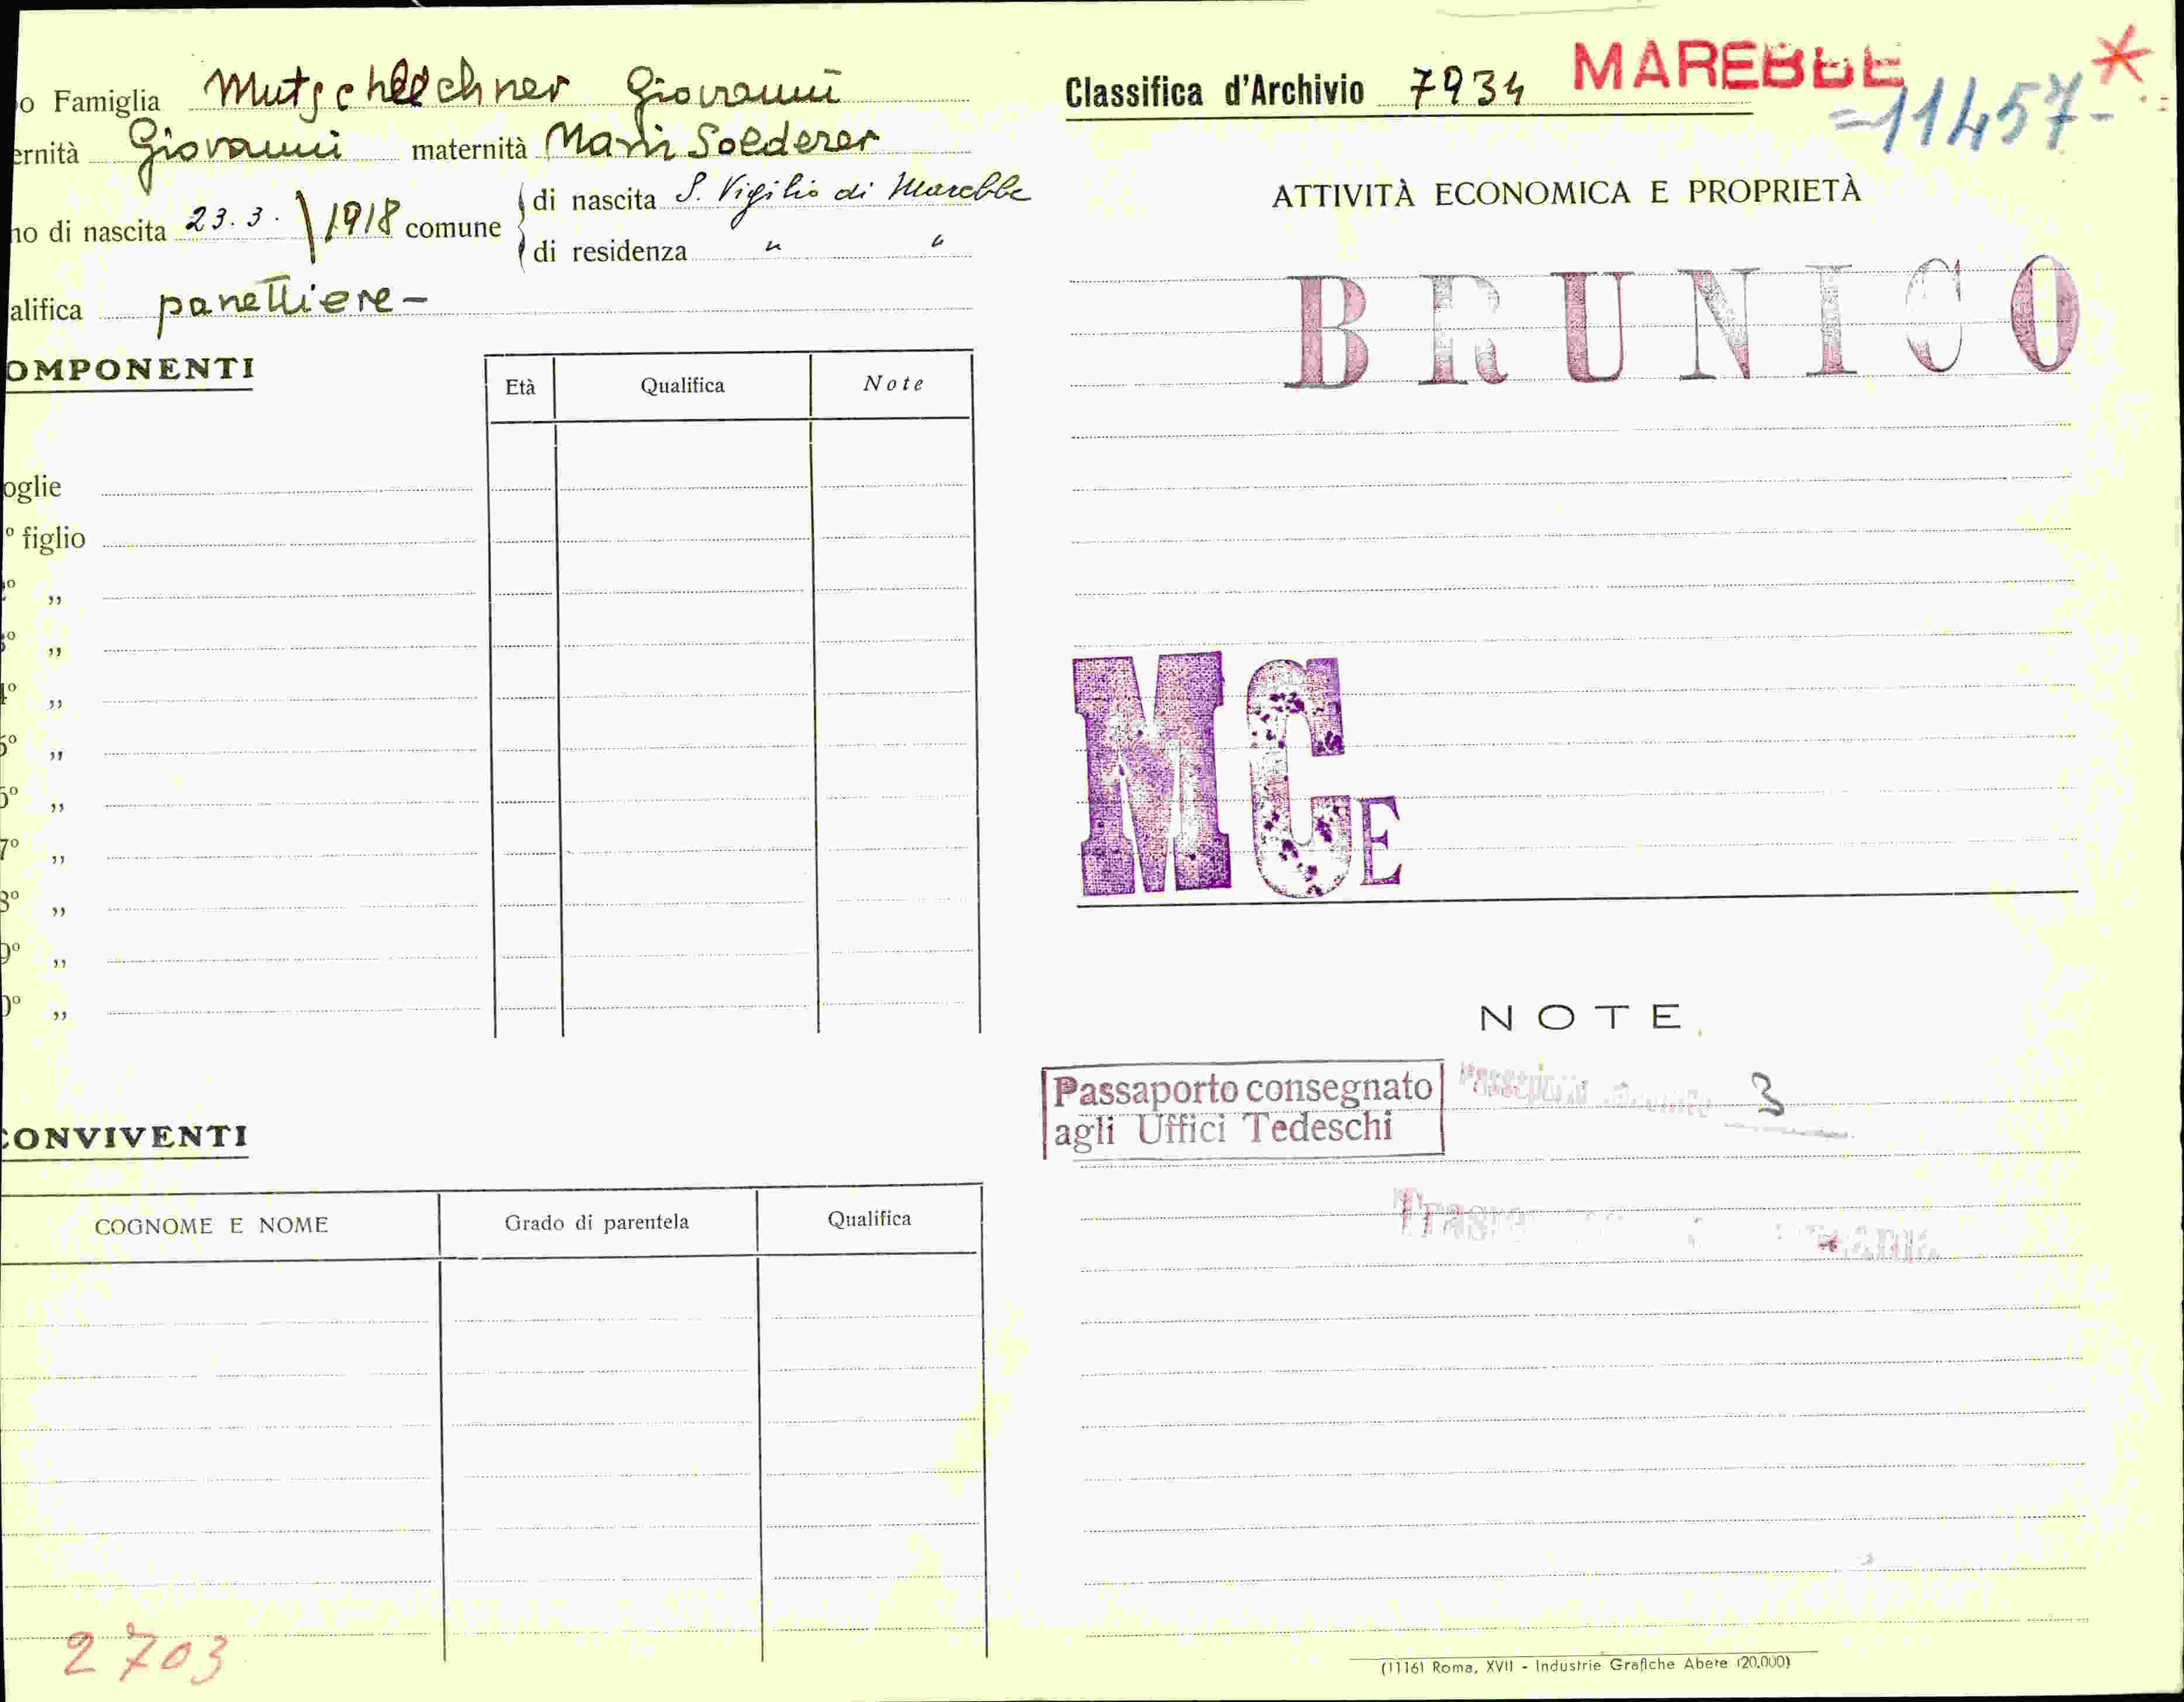 o Famiglia Mutschlechner Giovanni
ernità Giovanni maternità Maria Soederer
no di nascita 23.3. 1918 comune
di nascita S. Vigilio di Marebbe
di residenza " "
alifica panettiere -
OMPONENTI
Età Qualifica Note
oglie
º figlio
º ,,
º ,,
4º ,,
5º ,,
6º ,,
7º ,,
8º ,,
9º ,,
0º ,,
CONVIVENTI
COGNOME E NOME Grado di parentela Qualifica
2703
Classifica d'Archivio 7934 MAREBBE *
=11457-
ATTIVITÀ ECONOMICA E PROPRIETÀ
BRUNICO
MCE
NOTE
Passaporto consegnato
agli Uffici Tedeschi
3
(11161 Roma, XVII - Industrie Grafiche Abete (20.000)